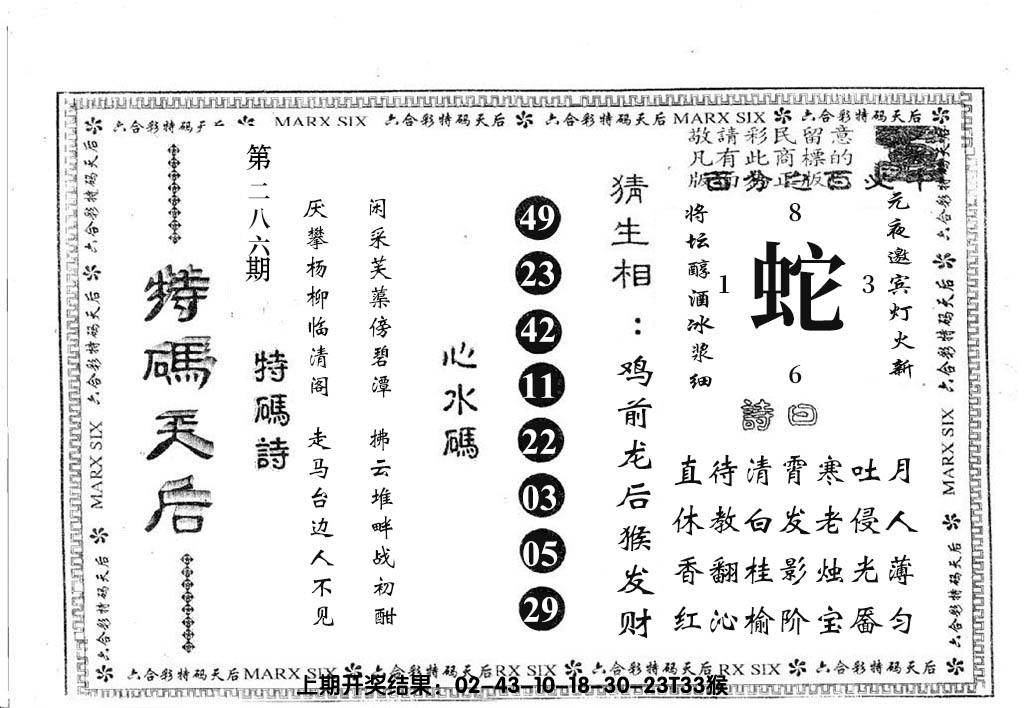 六合彩特码天后 MARX SIX 六合彩特码天后 六合彩特码天后 MARX SIX 六合彩特码天后
敬請彩民留意
凡有此商標的
特碼天后
第二八六期
特碼詩
厌攀杨柳临清阁 走马台边人不见
闲采芙蕖傍碧潭 拂云堆畔战初酣
心水碼
49
23
42
11
22
03
05
29
猜生相:鸡前龙后猴发财
将坛醇酒冰浆细
8
1 蛇 3
6
元夜邀宾灯火新
詩曰
直待清霄寒吐月
休教白发老侵人
香翻桂影烛光薄
红沁榆阶宝靥匀
六合彩特码天后 MARX SIX 六合彩特码天后
六合彩特码天后 MARX SIX 六合彩特码天后
六合彩特码天后 MARX SIX 六合彩特码天后RX SIX 六合彩特码天后 RX SIX 六合彩特码天后
上期开奖结果：02-43-10-18-30-23T33猴